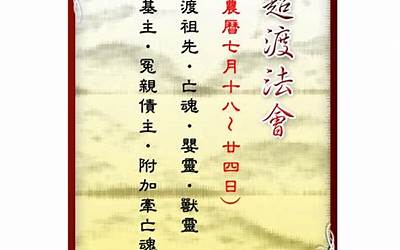 超渡法會
農曆七月十八~廿四日)
渡祖先·亡魂·嬰靈·獸靈
基主·冤親債主·附加牽亡魂